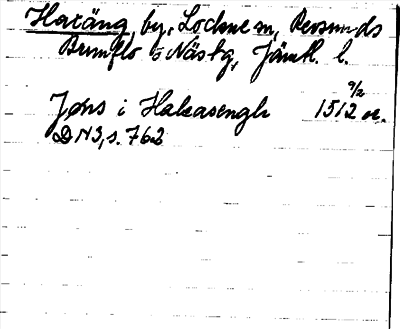 Haxäng, by, Lockne sn, Revsunds
Brunflo o Näs tg, Jämtl. l.
9/2
Jøns i Hakasengh 1512 or.
DN 3, s. 762